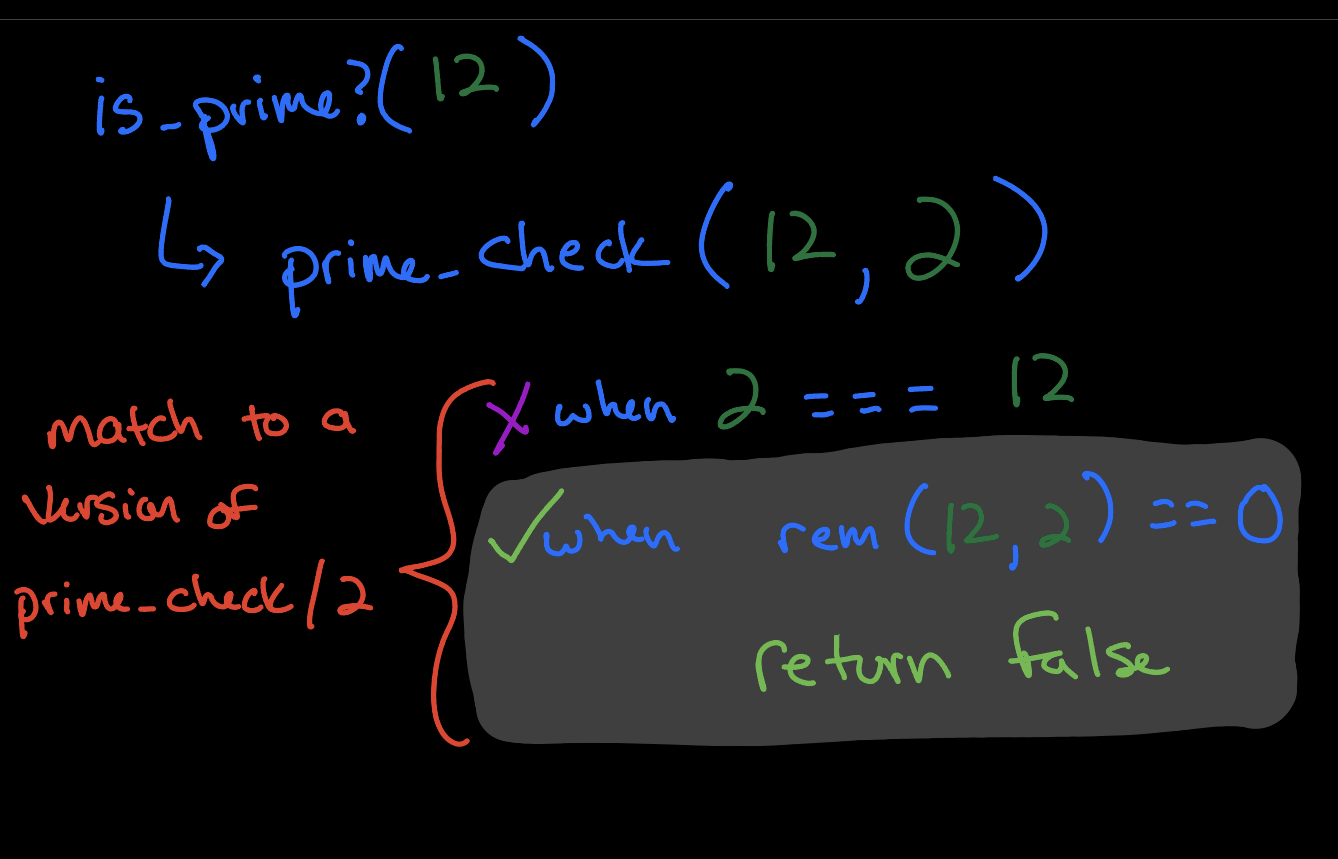 is_prime?(12)
↳ prime_check(12, 2)
match to a
version of
prime_check/2
✗ when 2 === 12
✓ when rem(12, 2) == 0
return false